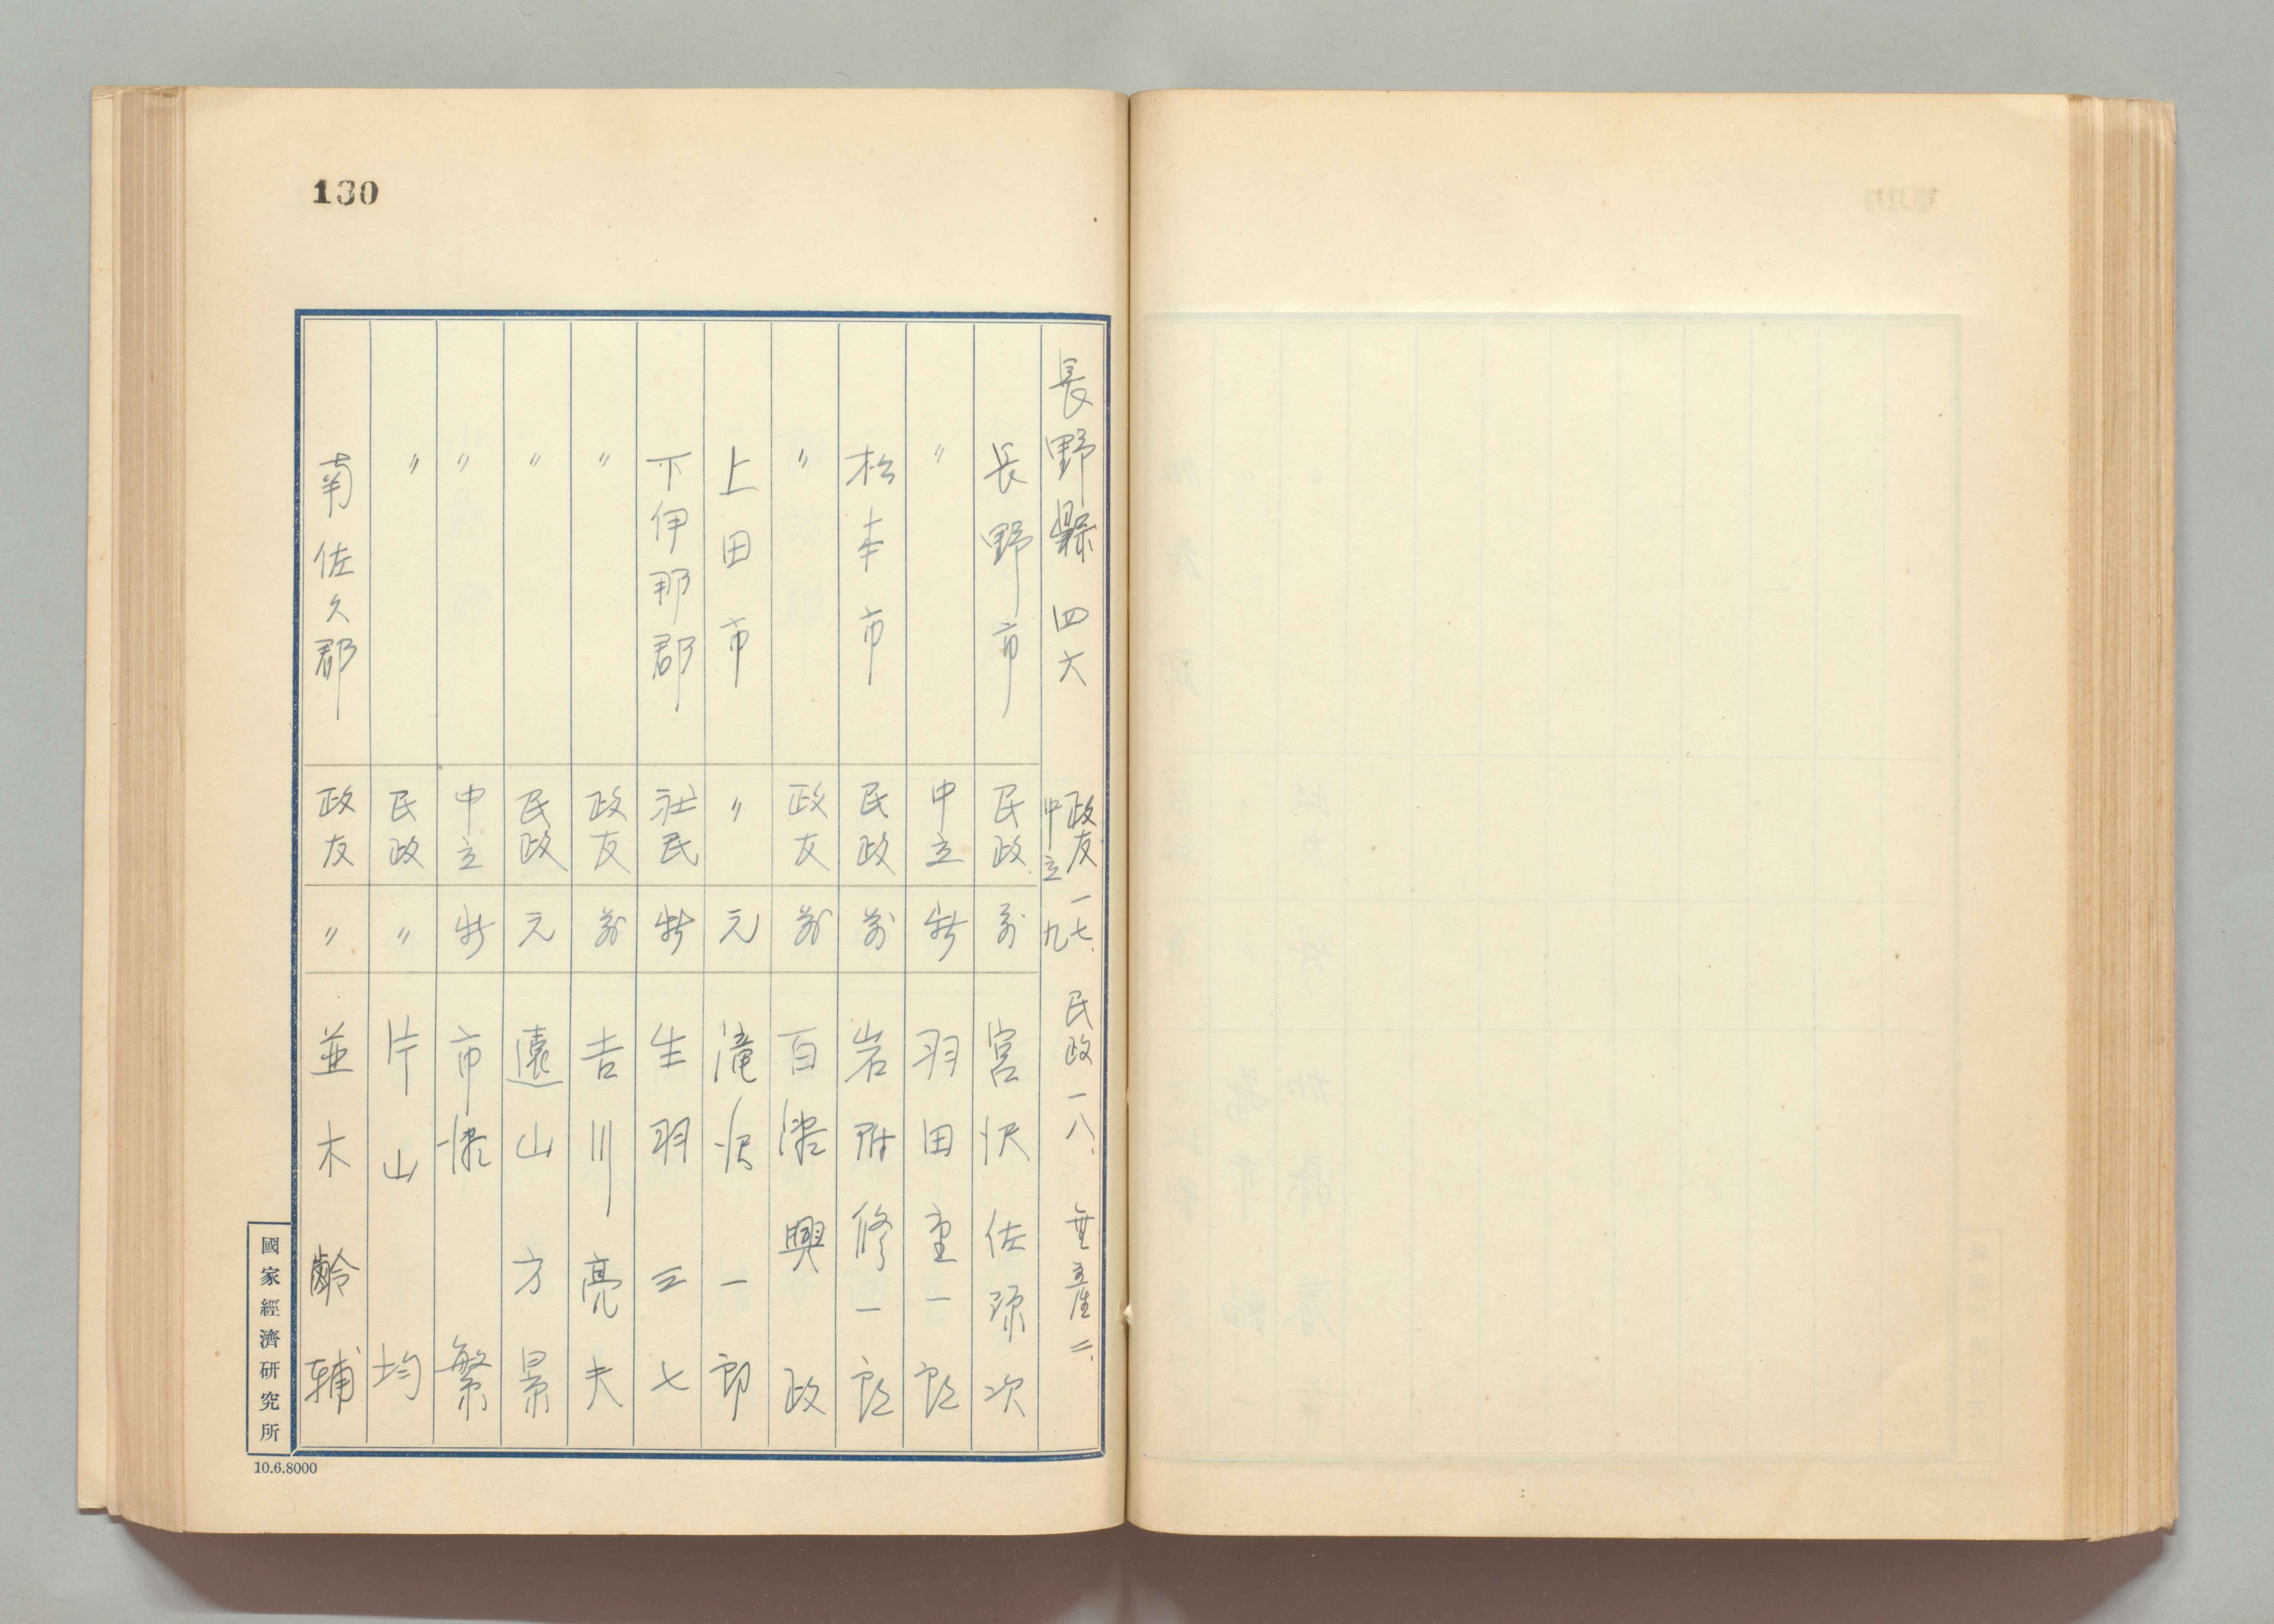 130
長野縣 四六 政友 一七、民政 一八、無産 二、
中立 九
長野市 民政 前 宮沢佐源次
〃 中立 新 羽田重一郎
松本市 民政 前 岩附修一郎
〃 政友 前 百瀬興政
上田市 〃 元 滝沢一郎
下伊那郡 社民 新 生羽三七
〃 政友 前 吉川亮夫
〃 民政 元 遠山方景
〃 中立 新 市瀬繁
〃 民政 〃 片山均
南佐久郡 政友 〃 並木齢輔
國家經濟研究所
10.6.8000